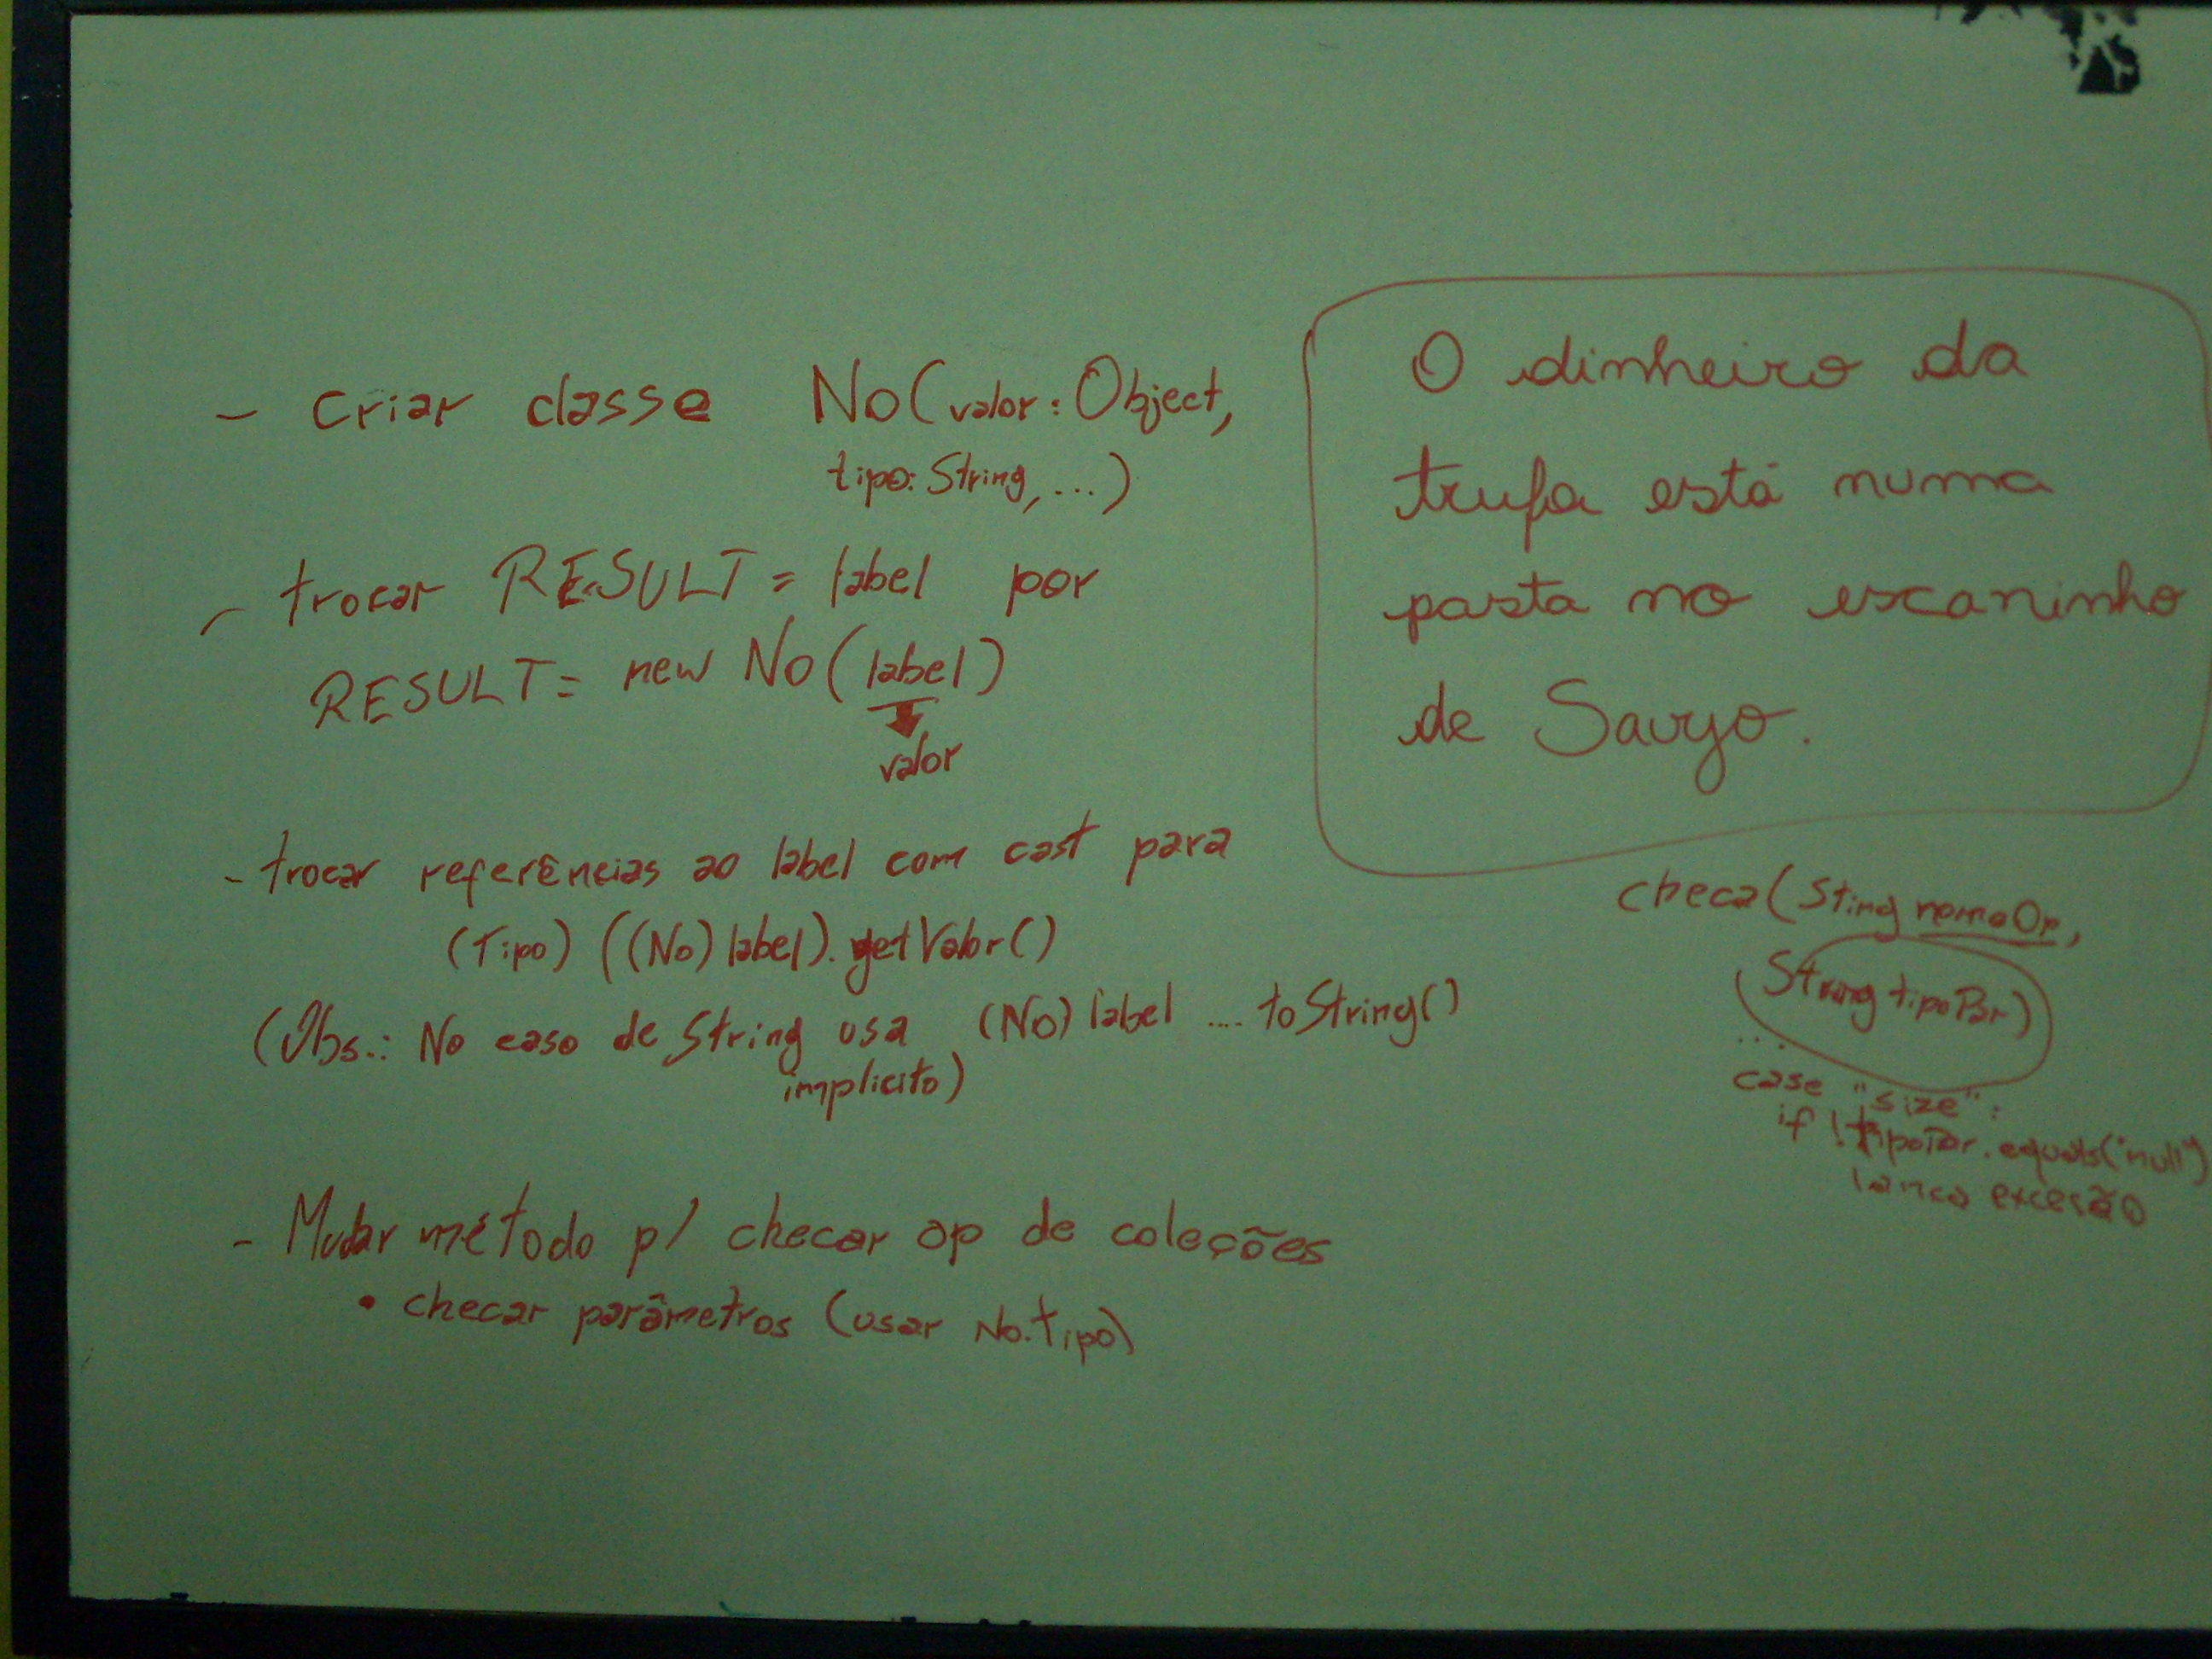 - criar classe No(valor: Object,
tipo: String, ...)
- trocar RESULT = label por
RESULT = new No(label)
valor
- trocar referências ao label com cast para
(Tipo) ((No) label).getValor()
(Obs.: No caso de String usa (No) label .... toString()
implicito)
- Mudar método p/ checar op de coleções
• checar parâmetros (usar No.tipo)
O dinheiro da
trufa está numa
pasta no escaninho
de Savyo.
checa(Sting nomeOp,
String tipoPar)
...
case "size":
if !tipoPar.equals("null")
lança exceção